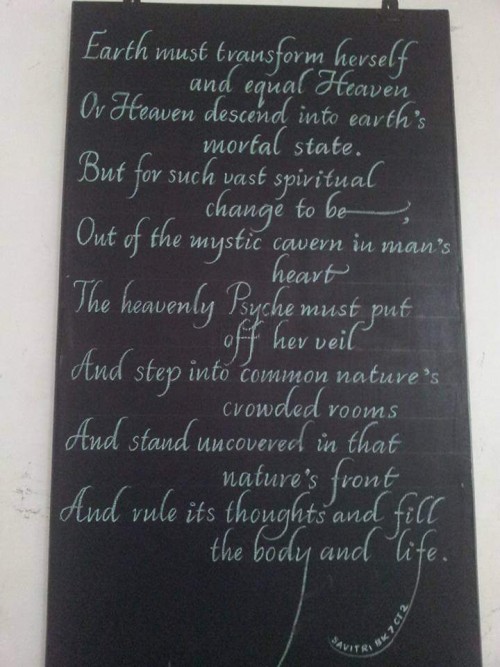 Earth must transform herself
and equal Heaven
Or Heaven descend into earth's
mortal state.
But for such vast spiritual
change to be,
Out of the mystic cavern in man's
heart
The heavenly Psyche must put
off her veil
And step into common nature's
crowded rooms
And stand uncovered in that
nature's front
And rule its thoughts and fill
the body and life.
SAVITRI BK 7 CT 2